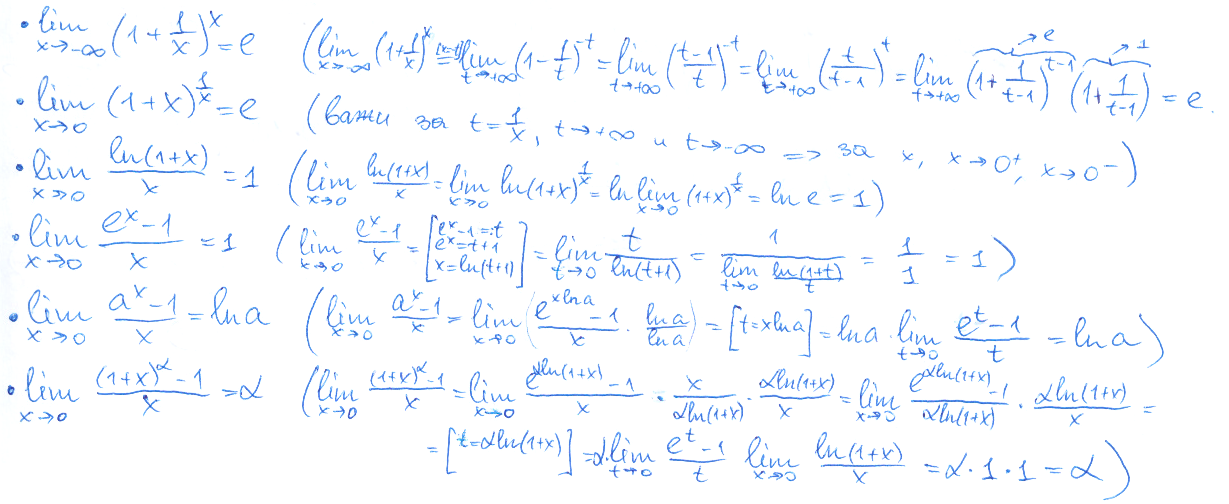 • lim_{x→-∞} (1+1/x)^x = e (lim_{x→-∞} (1+1/x)^x = [x=-t] lim_{t→+∞} (1-1/t)^{-t} = lim_{t→+∞} ((t-1)/t)^{-t} = lim_{t→+∞} (t/(t-1))^t = lim_{t→+∞} (1+1/(t-1))^{t-1} →e (1+1/(t-1)) →1 = e.
• lim_{x→0} (1+x)^{1/x} = e (важи за t=1/x, t→+∞ и t→-∞ => за x, x→0⁺, x→0⁻)
• lim_{x→0} ln(1+x)/x = 1 (lim_{x→0} ln(1+x)/x = lim_{x→0} ln(1+x)^{1/x} = ln lim_{x→0} (1+x)^{1/x} = ln e = 1)
• lim_{x→0} (e^x-1)/x = 1 (lim_{x→0} (e^x-1)/x = [e^x-1=:t e^x=t+1 x=ln(t+1)] = lim_{t→0} t/ln(t+1) = 1/(lim_{t→0} ln(1+t)/t) = 1/1 = 1)
• lim_{x→0} (a^x-1)/x = ln a (lim_{x→0} (a^x-1)/x = lim_{x→0} ((e^{x ln a}-1)/x · ln a/ln a) = [t=x ln a] = ln a · lim_{t→0} (e^t-1)/t = ln a)
• lim_{x→0} ((1+x)^α-1)/x = α (lim_{x→0} ((1+x)^α-1)/x = lim_{x→0} (e^{α ln(1+x)}-1)/x · x/(α ln(1+x)) · α ln(1+x)/x = lim_{x→0} (e^{α ln(1+x)}-1)/(α ln(1+x)) · α ln(1+x)/x =
= [t=α ln(1+x)] = α·lim_{t→0} (e^t-1)/t lim_{x→0} ln(1+x)/x = α·1·1 = α)